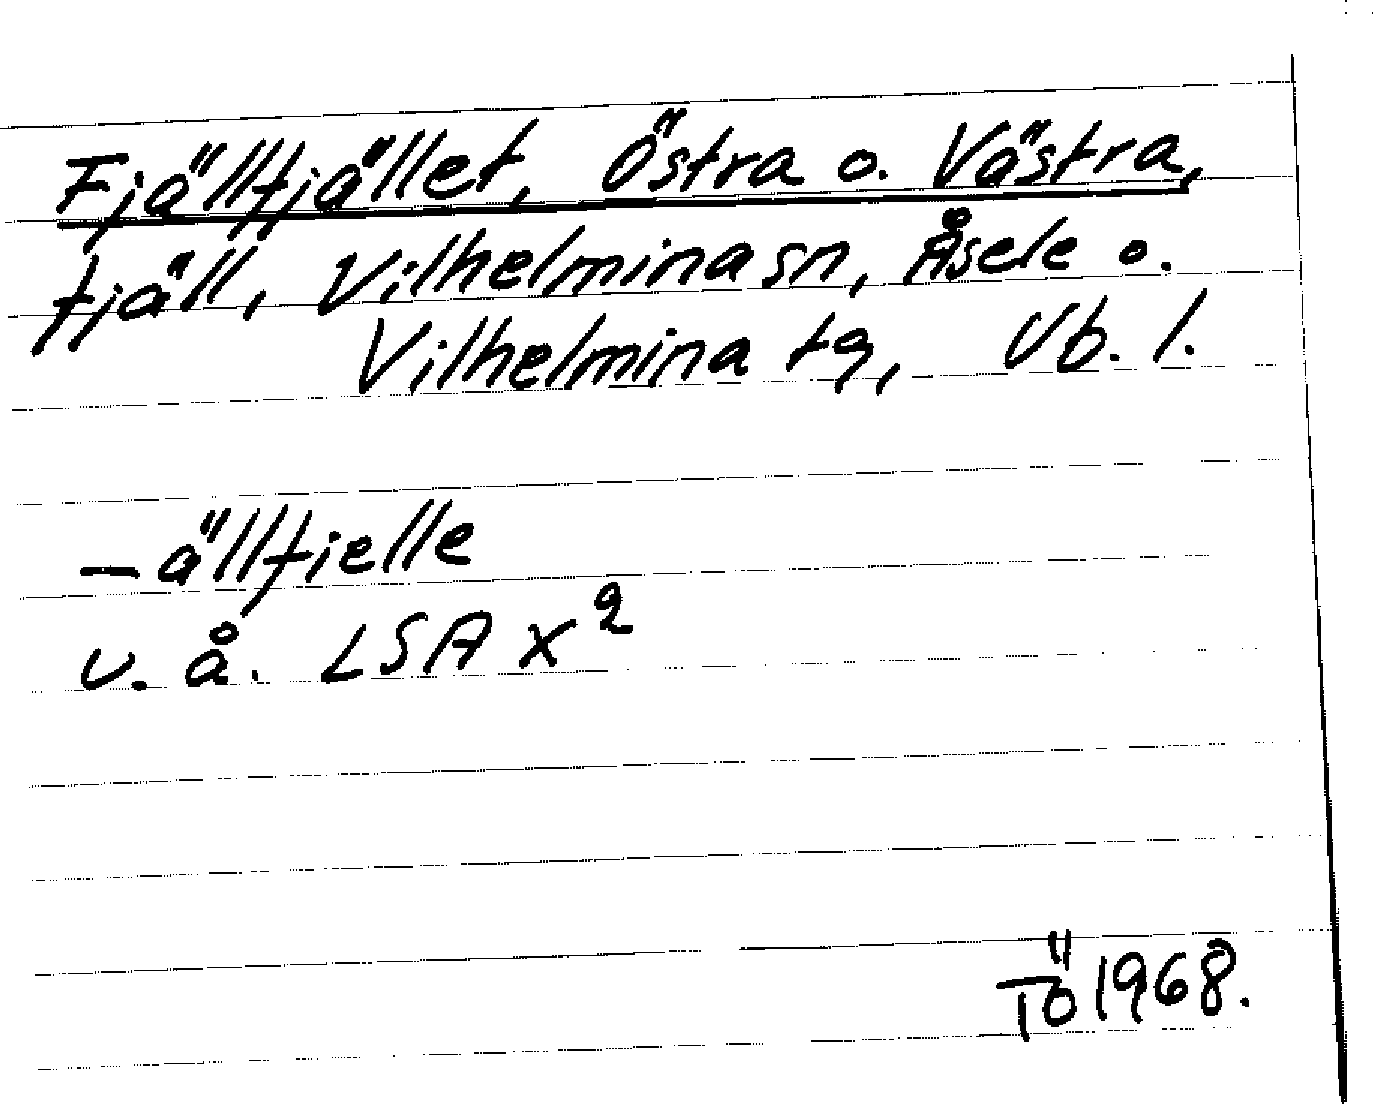 Fjällfjället, Östra o. Västra,
fjäll, Vilhelmina sn, Åsele o.
Vilhelmina tg, Vb. l.
- ällfjelle
u. å. LSA X²
TÖ 1968.